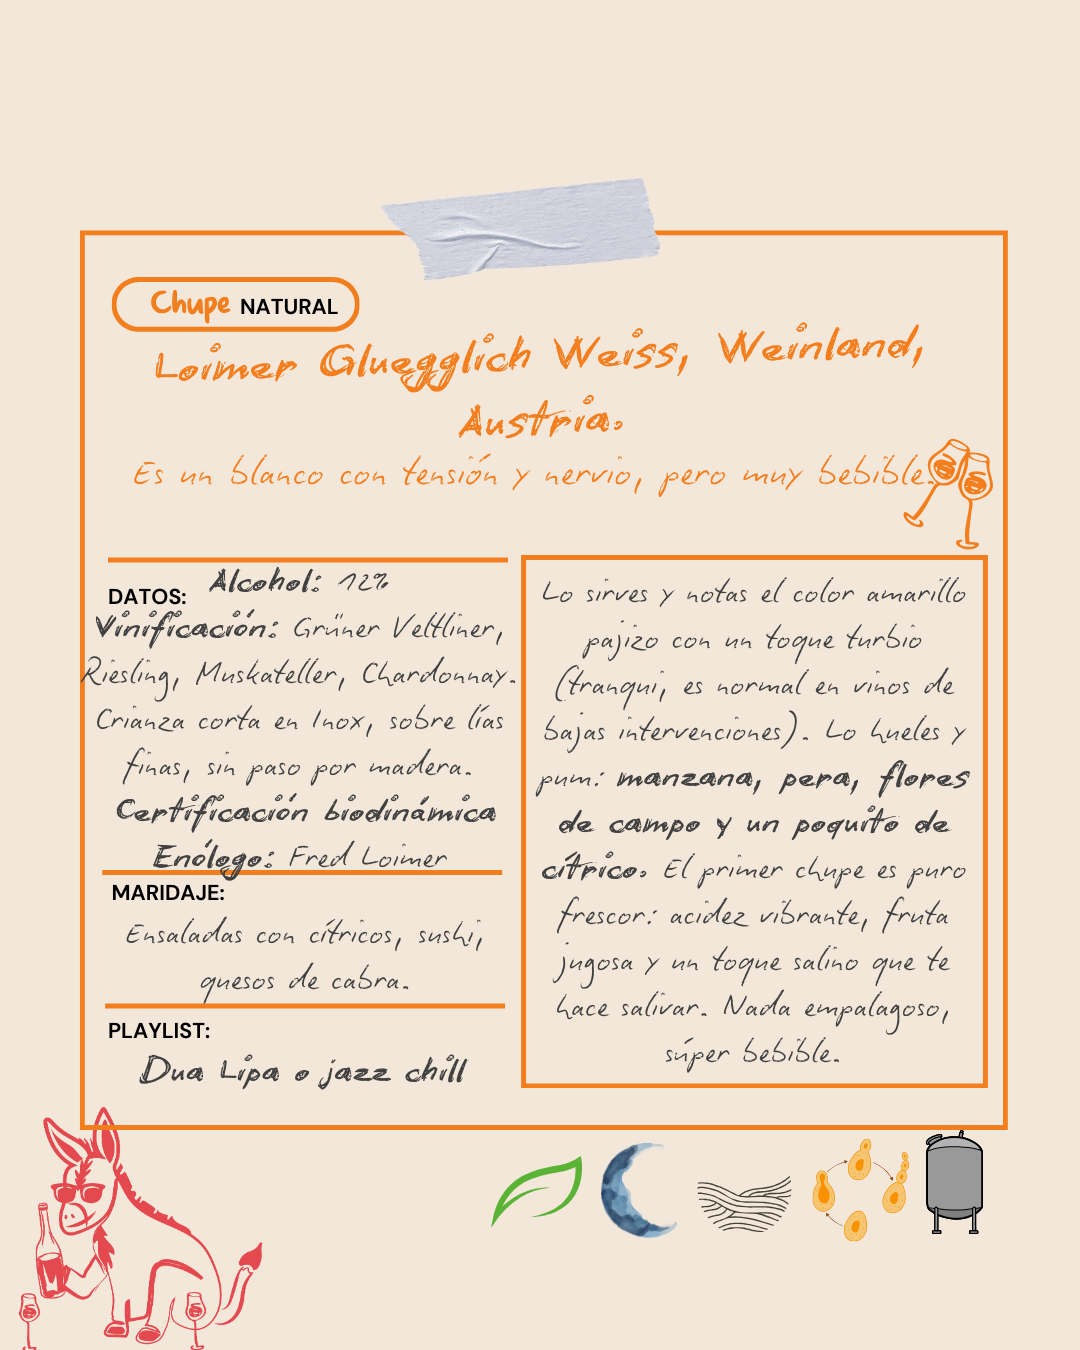 Chupe NATURAL
Loimer Gluegglich Weiss, Weinland,
Austria.
Es un blanco con tensión y nervio, pero muy bebible.
DATOS: Alcohol: 12%
Vinificación: Grüner Veltliner,
Riesling, Muskateller, Chardonnay.
Crianza corta en Inox, sobre lías
finas, sin paso por madera.
Certificación biodinámica
Enólogo: Fred Loimer
MARIDAJE:
Ensaladas con cítricos, sushi,
quesos de cabra.
PLAYLIST:
Dua Lipa o jazz chill
Lo sirves y notas el color amarillo
pajizo con un toque turbio
(tranqui, es normal en vinos de
bajas intervenciones). Lo hueles y
pum: manzana, pera, flores
de campo y un poquito de
cítrico. El primer chupe es puro
frescor: acidez vibrante, fruta
jugosa y un toque salino que te
hace salivar. Nada empalagoso,
súper bebible.